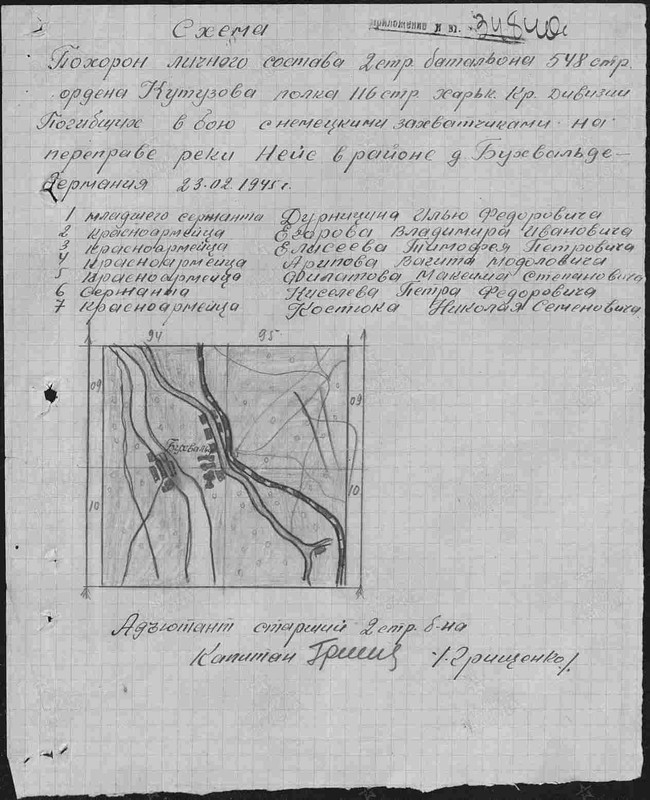 Приложение к вх. 34840с
Схема
Похорон личного состава 2стр. батальона 548 стр.
ордена Кутузова полка 116 стр. харьк. Кр. Дивизии
Погибших в бою с немецкими захватчиками на
переправе реки Нейс в районе д. Бухвальде-
Германия 23.02.1945 г.
1 младшего сержанта Дурницина Илью Федоровича
2 Красноармейца Егорова Владимира Ивановича
3 Красноармейца Елисеева Тимофея Петровича
4 Красноармейца Арипова Вагита
5 Красноармейца Филатова Максима Степановича
6 Сержанта Киселева Петра Федоровича
7 Красноармейца Костюка Николая Семеновича
94 95
09 09
Бухвальд
10 10
Адъютант старший 2стр. б-на
Капитан /Грищенко/.